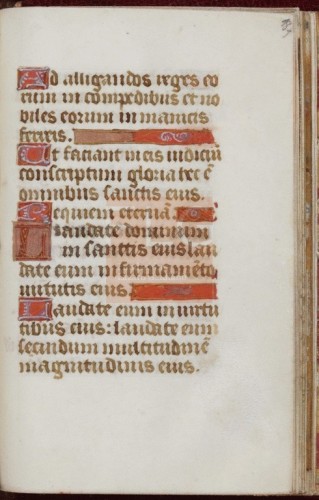 Ad alligandos reges eo
rum in compedibus et no
biles eorum in manicis
ferreis.
Ut faciant in eis iudiciū
conscriptum gloria hec ē
omnibus sanctis eius.
Requiem eternā.
Laudate dominum
in sanctis eius lau
date eum in firmamēto
virtutis eius.
Laudate eum in virtu
tibus eius: laudate eum
secundum multitudinē
magnitudinis eius.